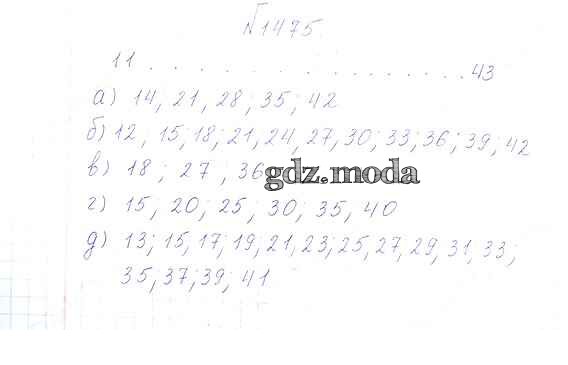 №1475.
11 . . . . . . . . . . . . . . . . 43
а) 14, 21, 28, 35, 42
б) 12, 15; 18; 21, 24, 27, 30; 33; 36; 39; 42
в) 18; 27, 36
gdz.moda
г) 15, 20; 25; 30; 35, 40
д) 13; 15, 17; 19, 21, 23; 25, 27, 29, 31, 33;
35, 37; 39; 41